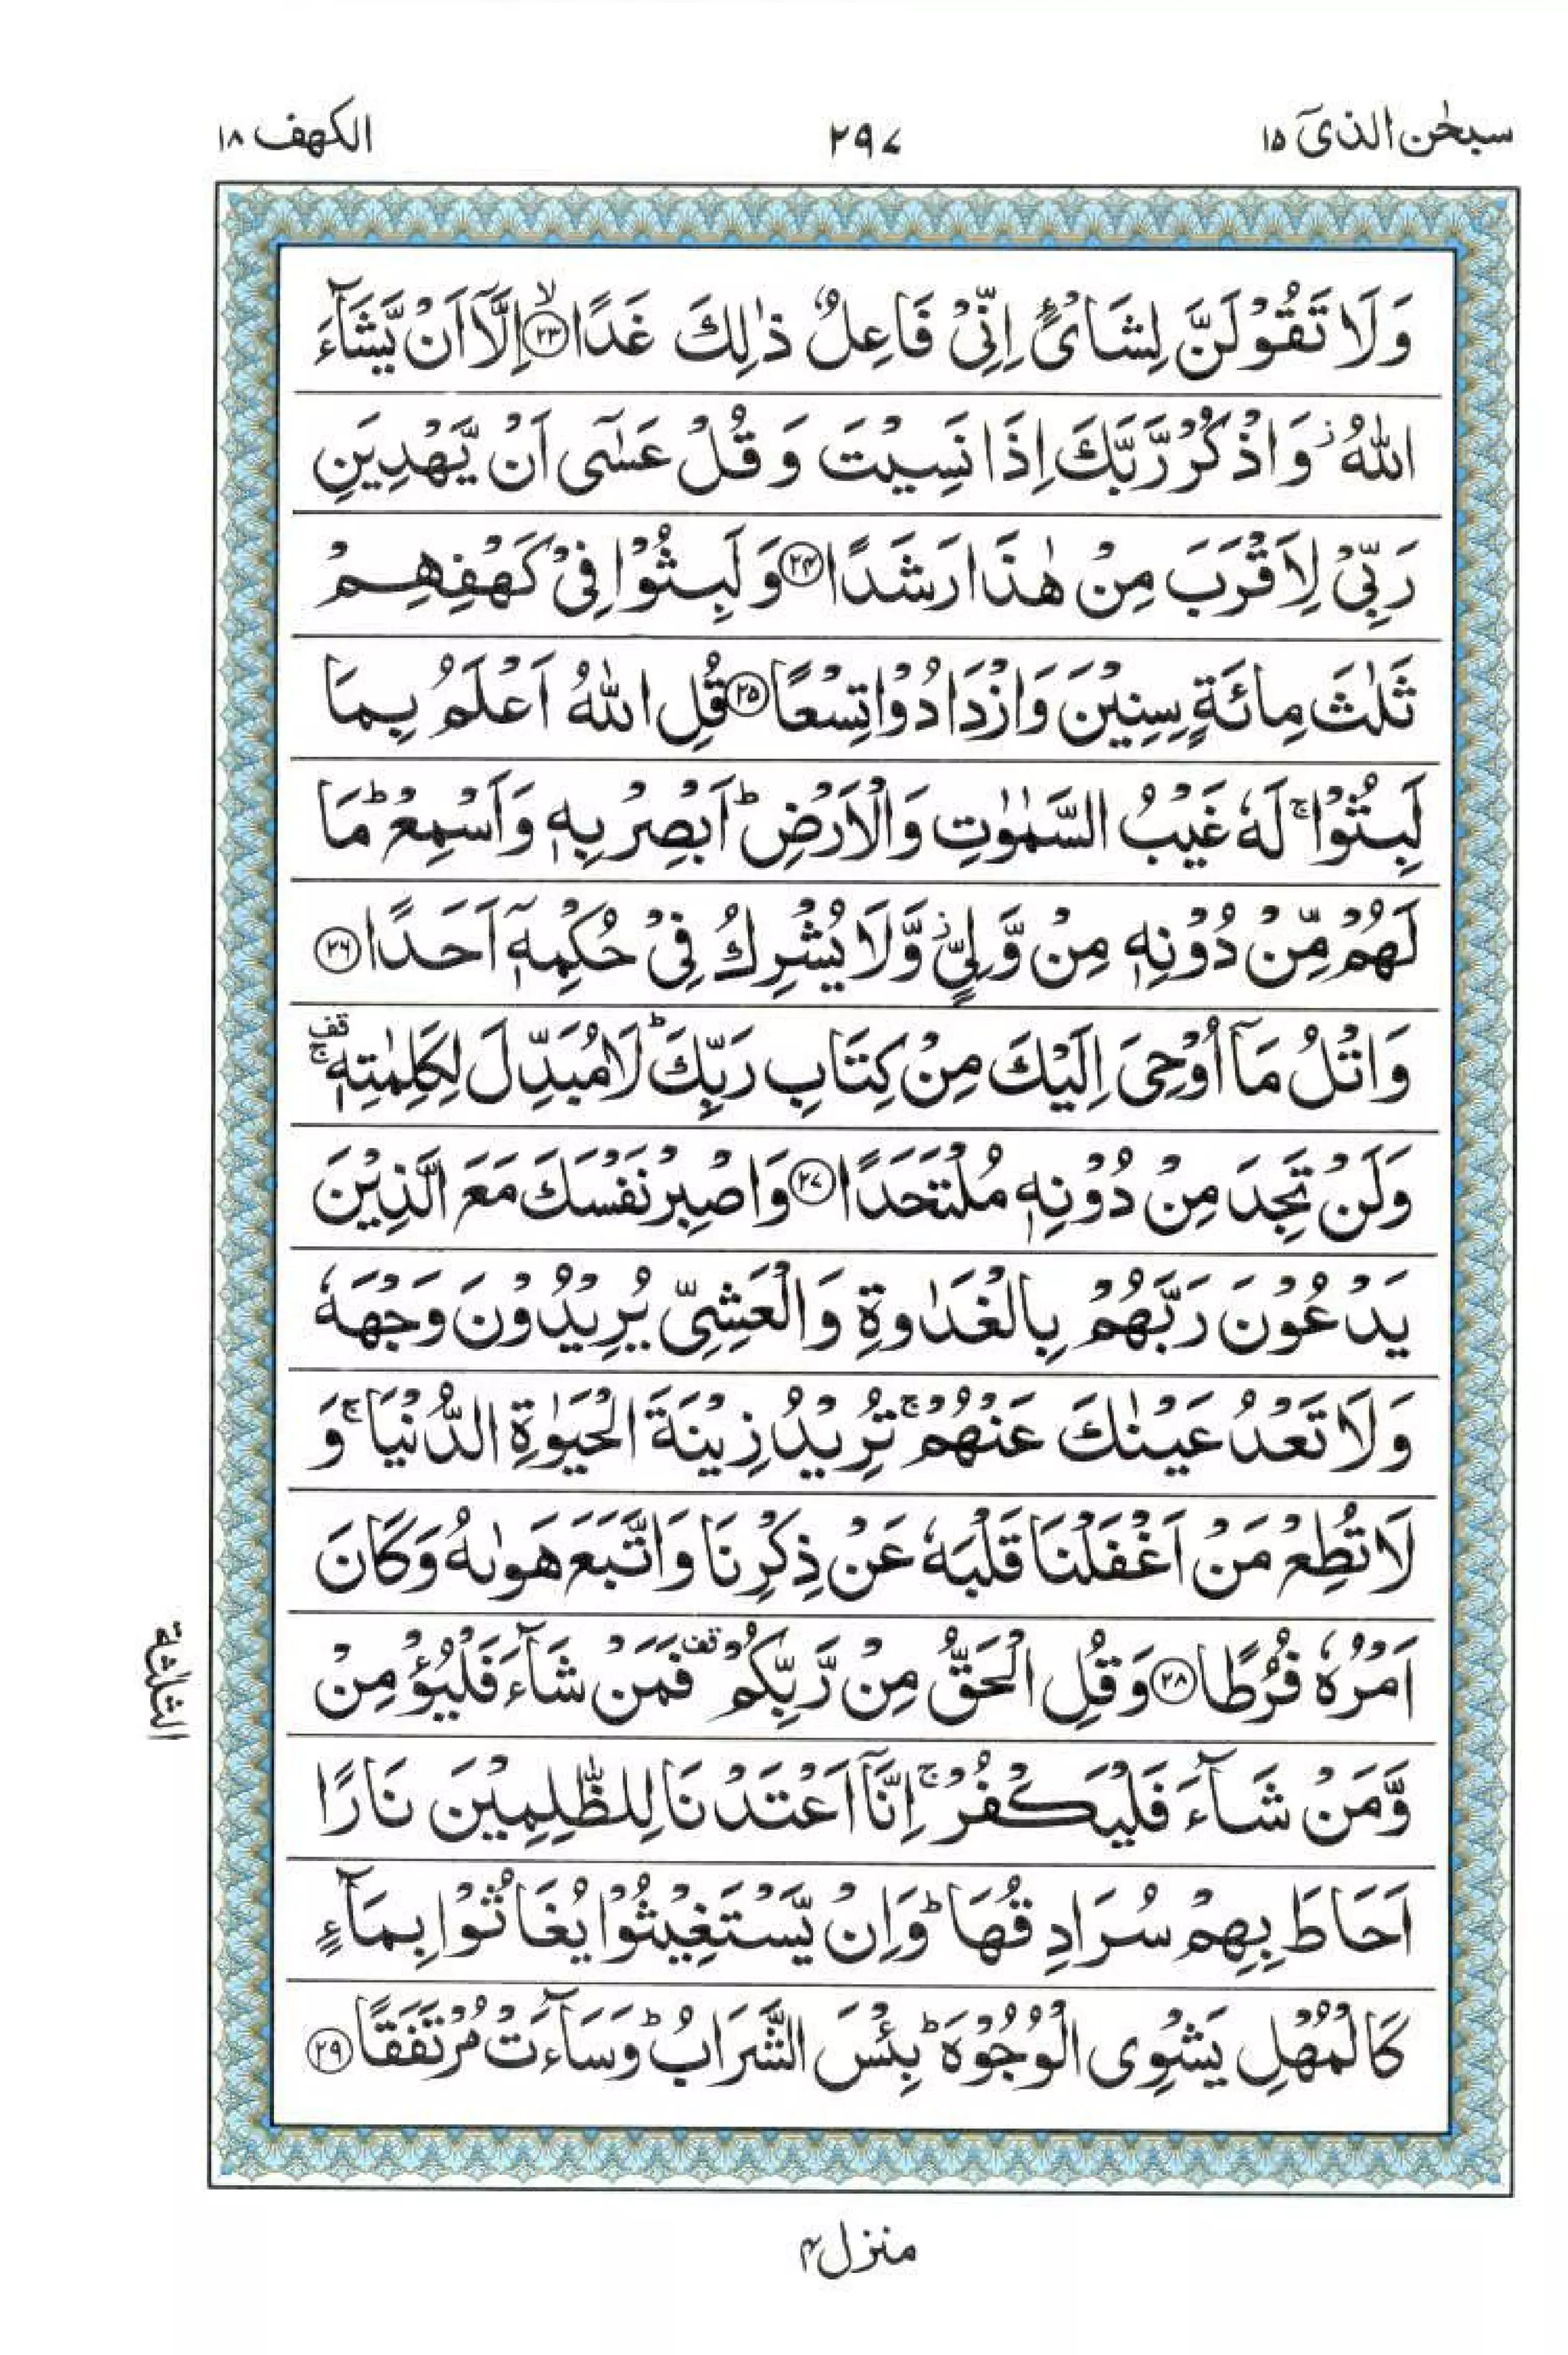 سبحٰن الذیٓ ١٥
٢٩٧
الکھف ١٨
وَلَا تَقُوْلَنَّ لِشَایْءٍ اِنِّیْ فَاعِلٌ ذٰلِكَ غَدًا ﴿٢٣﴾ۙ اِلَّاۤ اَنْ یَّشَآءَ
اللّٰهُ ؗ وَاذْكُرْ رَّبَّكَ اِذَا نَسِیْتَ وَ قُلْ عَسٰۤی اَنْ یَّهْدِیَنِ
رَبِّیْ لِاَقْرَبَ مِنْ هٰذَا رَشَدًا ﴿٢٤﴾ وَ لَبِثُوْا فِیْ كَهْفِهِمْ
ثَلٰثَ مِائَةٍ سِنِیْنَ وَازْدَادُوْا تِسْعًا ﴿٢٥﴾ قُلِ اللّٰهُ اَعْلَمُ بِمَا
لَبِثُوْا ۚ لَهٗ غَیْبُ السَّمٰوٰتِ وَالْاَرْضِ ؕ اَبْصِرْ بِهٖ وَاَسْمِعْ ؕ مَا
لَهُمْ مِّنْ دُوْنِهٖ مِنْ وَّلِیٍّ ؗ وَّلَا یُشْرِكُ فِیْ حُكْمِهٖۤ اَحَدًا ﴿٢٦﴾
وَاتْلُ مَاۤ اُوْحِیَ اِلَیْكَ مِنْ كِتَابِ رَبِّكَ ؕ لَا مُبَدِّلَ لِكَلِمٰتِهٖ ۚ قف
وَلَنْ تَجِدَ مِنْ دُوْنِهٖ مُلْتَحَدًا ﴿٢٧﴾ وَاصْبِرْ نَفْسَكَ مَعَ الَّذِیْنَ
یَدْعُوْنَ رَبَّهُمْ بِالْغَدٰوةِ وَالْعَشِیِّ یُرِیْدُوْنَ وَجْهَهٗ
وَلَا تَعْدُ عَیْنٰكَ عَنْهُمْ ۚ تُرِیْدُ زِیْنَةَ الْحَیٰوةِ الدُّنْیَا ۚ وَ
لَا تُطِعْ مَنْ اَغْفَلْنَا قَلْبَهٗ عَنْ ذِكْرِنَا وَاتَّبَعَ هَوٰىهُ وَكَانَ
اَمْرُهٗ فُرُطًا ﴿٢٨﴾ وَقُلِ الْحَقُّ مِنْ رَّبِّكُمْ قف فَمَنْ شَآءَ فَلْیُؤْمِنْ
وَّمَنْ شَآءَ فَلْیَكْفُرْ ۚ اِنَّاۤ اَعْتَدْنَا لِلظّٰلِمِیْنَ نَارًا
اَحَاطَ بِهِمْ سُرَادِقُهَا ؕ وَاِنْ یَّسْتَغِیْثُوْا یُغَاثُوْا بِمَآءٍ
كَالْمُهْلِ یَشْوِی الْوُجُوْهَ ؕ بِئْسَ الشَّرَابُ ؕ وَسَآءَتْ مُرْتَفَقًا ﴿٢٩﴾
الثلٰثة
منزل ٤